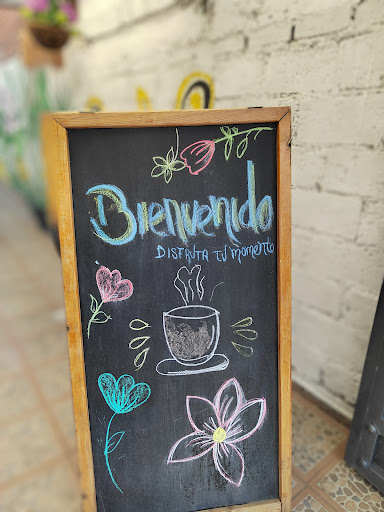 Bienvenido
DISFRUTA TU momento